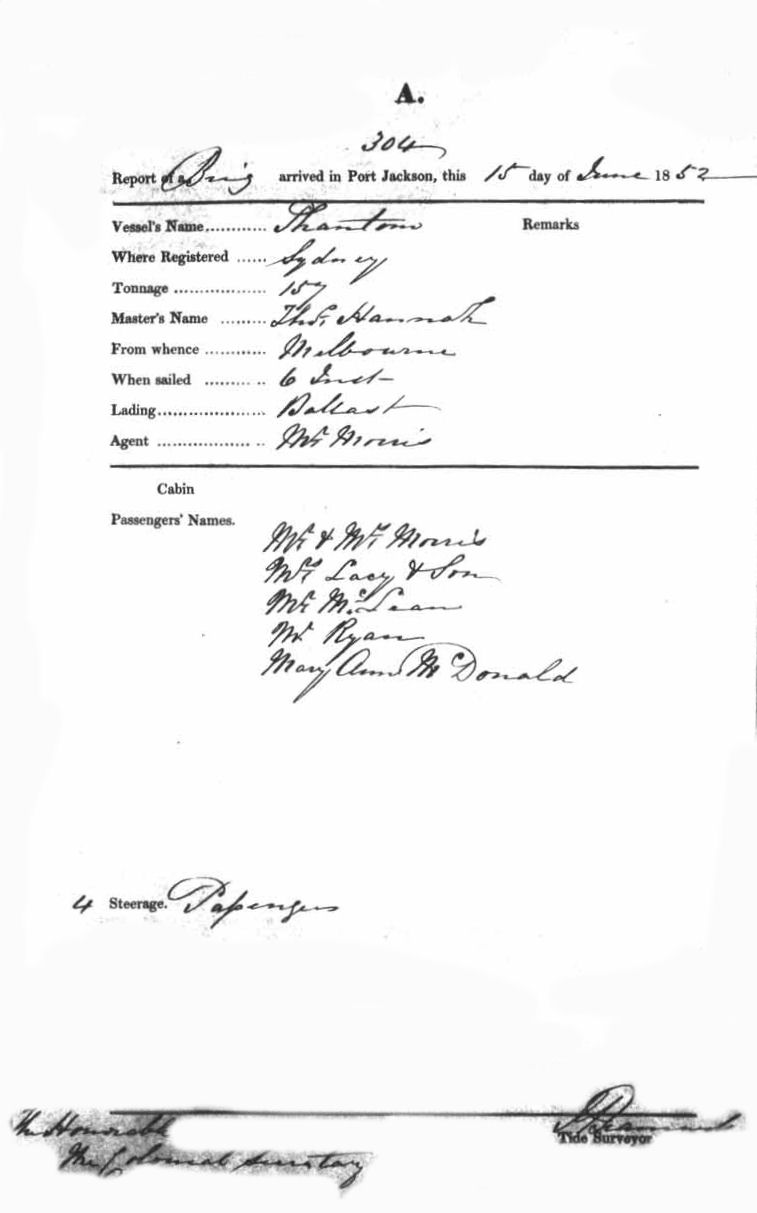 A.
304
Report of a Brig arrived in Port Jackson, this 15 day of June 1852
Vessel's Name............ Phantom Remarks
Where Registered ...... Sydney
Tonnage .................. 157
Master's Name ......... Thos. Hannah
From whence ............ Melbourne
When sailed ......... .. 6 Inst
Lading..................... Ballast
Agent .................. .. Mr Morris
Cabin
Passengers' Names.
Mr & Mrs Morris
Mrs Lacy & Son
Mr McLean
Mr Ryan
Mary Ann McDonald
4 Steerage. Passengers
The Honorable
The Colonial Secretary
Tide Surveyor